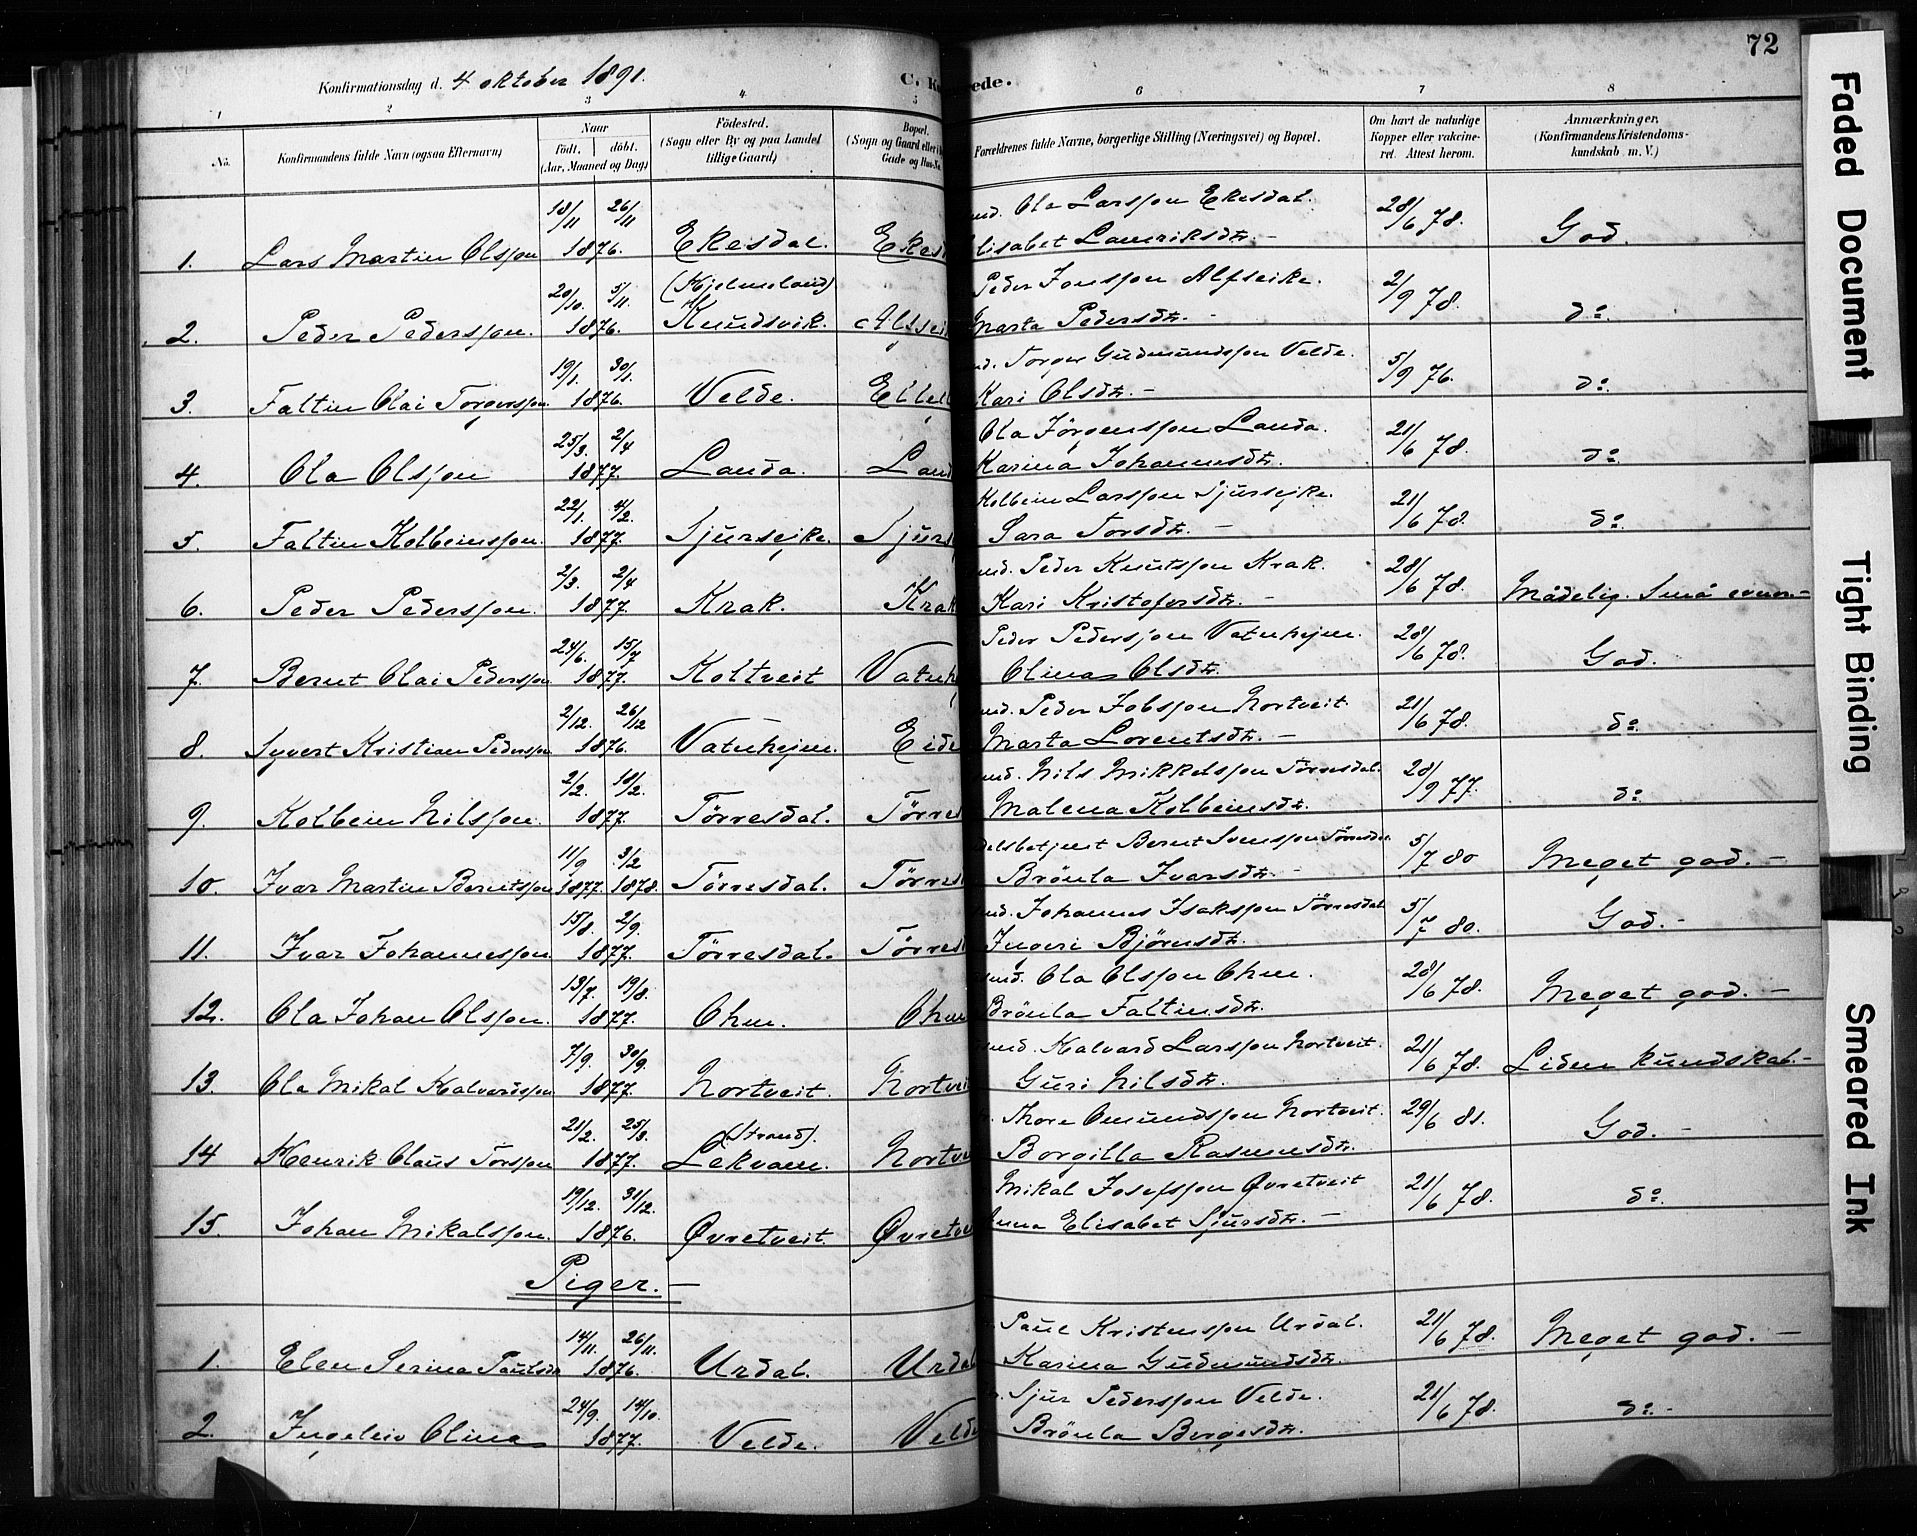 72
Konfirmationsdag d. 4 oktober 1891.
C. K
ede.
1 2 3 4 5 6 7 8
No.
Konfirmandens fulde Navn (ogsaa Efternavn)
Naar
født, døbt.
(Aar, Maaned og Dag)
Fødested.
(Sogn eller By og paa Landet
tillige Gaard)
Bopæl.
(Sogn og Gaard eller
Gade og Hus-No.
Forældrenes fulde Navne, borgerlige Stilling (Næringsvei) og Bopæl.
Om havt de naturlige
Kopper eller vakcine-
ret. Attest herom.
Anmærkninger.
(Konfirmandens Kristendoms-
kundskab m. V.)
18/11 26/11 Ola Larsson Ekesdal. 28/6 78.
1. Lars Martin Olsson 1876. Ekesdal. Ekes Elisabet Lauriksdtr. – God.
20/10 5/11. (Hjelmeland) Peder Jonsson Alfseike. 2/9 78.
2. Peder Pedersson. 1876. Knudsvik. Alfsei Marta Pedersdtr. – do.
19/1. 30/1. Torger Gudmundsson Velde. 5/9 76.
3. Faltin Olai Torgersson. 1876. Velde. Kari Olsdtr. – do.
25/3 2/4 Ola Jørgensson Landa. 21/6 78.
4. Ola Olsson 1877. Landa. Land Karina Johannesdtr. do.
22/1. 4/2. Kolbein Larsson Sjurseike. 21/6 78.
5. Faltin Kolbeinsson. 1877. Sjurseike. Sjurs Sara Torsdtr. – do.
2/3. 2/4 Peder Knutsson Krak. 28/6 78.
6. Peder Pedersson. 1877. Krak. Krak Kari Kristofersdtr. – Mådelig. Små evner. –
24/6. 15/7 Peder Pedersson Vatnhejm. 28/6 78.
7. Bernt Olai Pedersson 1877. Koltveit Vatnh Olina Olsdtr. God.
2/12. 26/12 Peder Jobsson Nortveit 21/6 78.
8. Syvert Kristian Pedersson 1876. Vatnhejm. Eide Marta Lorentsdtr. – do.
2/2. 18/2. Nils Mikkelsson Tørresdal. 28/9 77.
9. Kolbein Nilsson. 1877. Tørresdal. Tørres Malena Kolbeinsdtr. do.
11/9 3/2 Bernt Svensson Tørresdal 5/7 80
10. Ivar Martin Berntsson 1877. 1878. Tørresdal. Tørres Brønla Ivarsdtr. – Meget god. –
15/8. 2/9. Johannes Isaksson Tørresdal 5/7 80.
11. Ivar Johannesson 1877. Tørresdal. Tørres Ingeri Bjørnsdtr. God. –
13/7. 19/8. Ola Olsson Ohm. 28/6 78.
12. Ola Johan Olsson. 1877. Ohm. Ohm Brønla Faltinsdtr. Meget god. –
7/9. 30/9. Halvard Larsson Nortveit. 21/6 78.
13. Ola Mikal Halvardsson 1877. Nortveit. Nortvei Guri Nilsdtr. Liden kundskab. –
21/2. 25/3. (Strand). Thore Omundsson Nortveit. 29/6 81.
14 Henrik Claus Torsson 1877. Lekvam. Nortve Borgilla Rasmusdtr. God. –
19/12. 31/12. Mikal Josefsson Øvretveit 21/6 78.
15. Johan Mikalsson. 1876. Øvretveit. Øvretve Anna Elisabet Sjursdtr. – do.
Piger. –
14/11. 26/11. Paul Kristensson Urdal. 21/6 78.
1. Elen Serina Paulsdtr 1876. Urdal. Urdal Karina Gudmundsdtr. Meget god. –
24/9. 14/10. Sjur Pedersson Velde. 21/6 78.
2. Ingeleiv Olina 1877. Velde. Velde Brønla Borgesdtr. do. –
Faded Document
Tight Binding
Smeared Ink